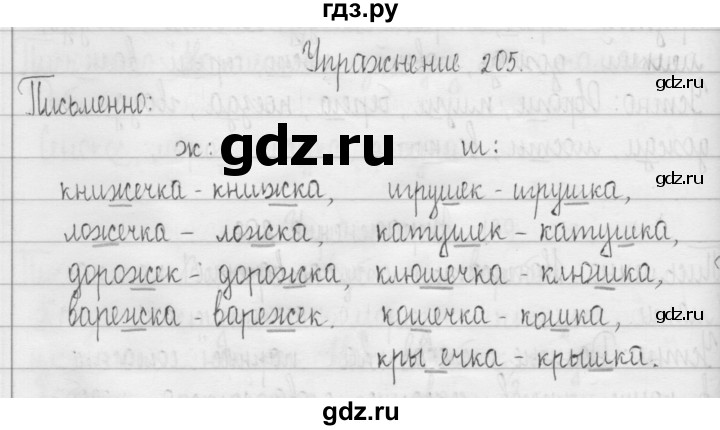 гдз.ру
Упражнение 205.
gdz.ru
Письменно:
gdz.ru
ж: ш:
книжечка - книжка, игрушек - игрушка,
gdz.ru
ложечка - ложка, катушек - катушка,
дорожек - дорожка, клюшечка - клюшка,
варежка варежек. кошечка - кошка,
gdz.ru
кры ечка - крышка.
gdz.ru